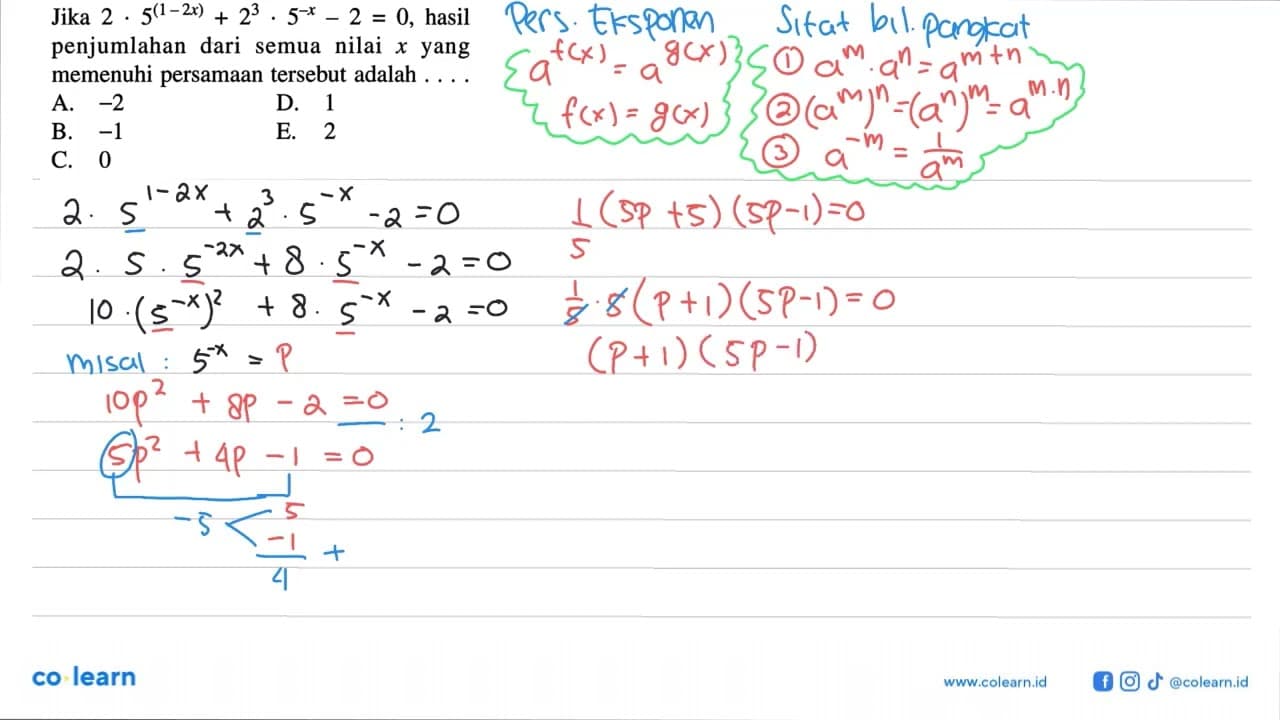 Jika 2 · 5^(1 – 2x) + 2^3 · 5^–x – 2 = 0, hasil
penjumlahan dari semua nilai x yang
memenuhi persamaan tersebut adalah . . . .
A. –2 D. 1
B. –1 E. 2
C. 0
Pers. Eksponen
a^f(x) = a^g(x)
f(x) = g(x)
Sifat bil. pangkat
① a^m · a^n = a^m+n
② (a^m)^n = (a^n)^m = a^m·n
③ a^-m = 1/a^m
2. 5^1-2x + 2^3 · 5^-x - 2 = 0
2. 5 . 5^-2x + 8 . 5^-x - 2 = 0
10 . (5^-x)^2 + 8 . 5^-x - 2 = 0
misal : 5^-x = p
10p^2 + 8p - 2 = 0 : 2
5p^2 + 4p - 1 = 0
-5 < 5
-1 +
4
1/5 (5p + 5) (5p - 1) = 0
1/5 · 5 (p + 1) (5p - 1) = 0
(p + 1) (5p - 1)
co·learn
www.colearn.id
@colearn.id